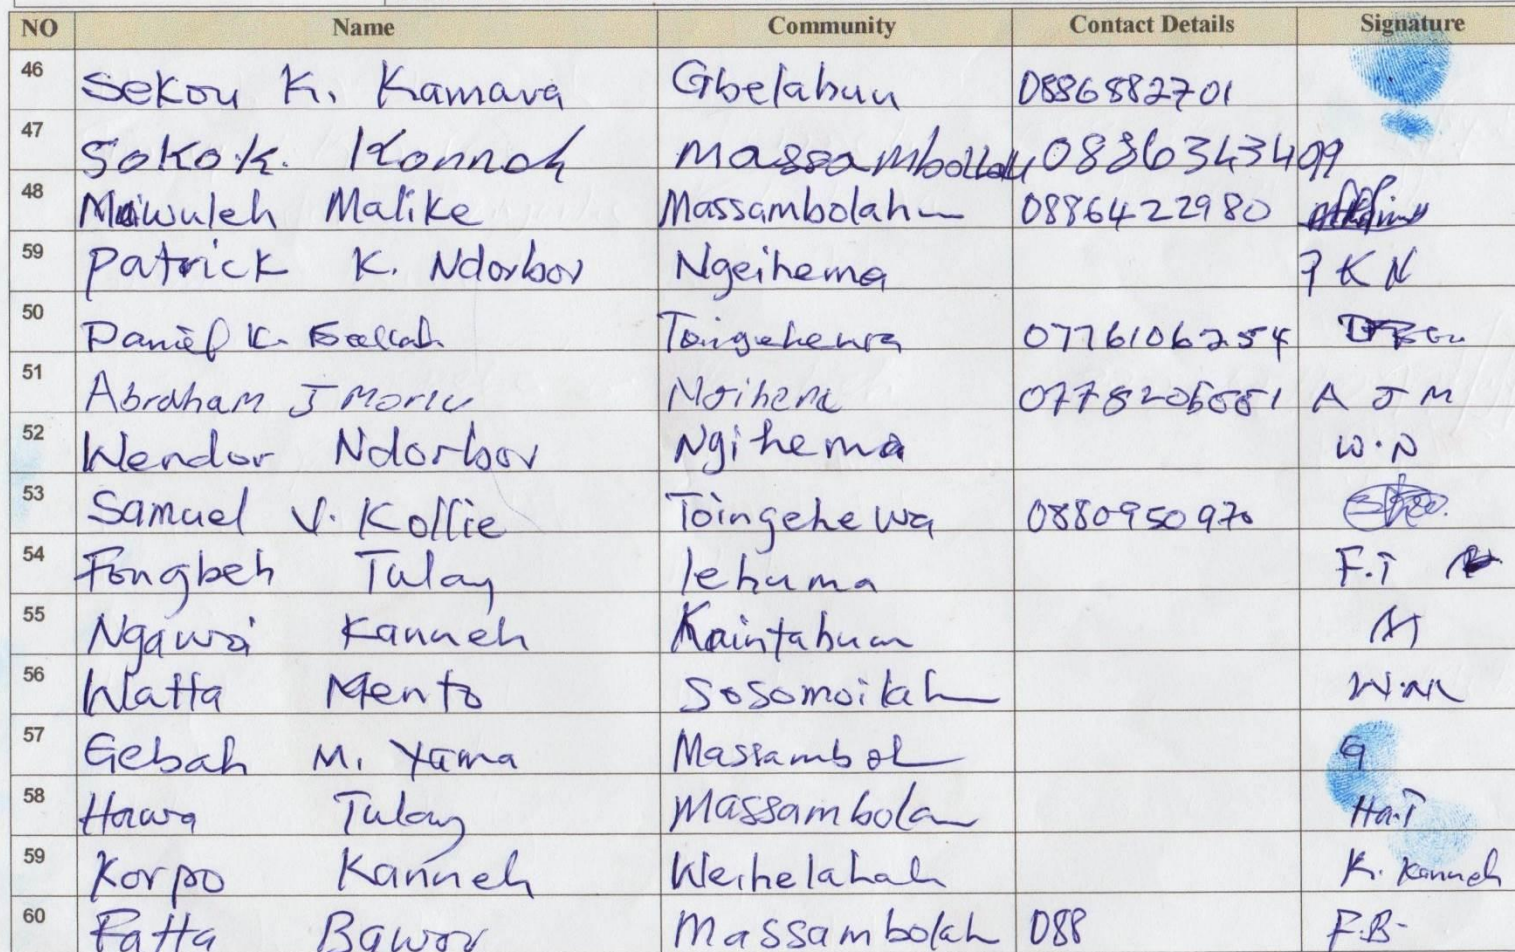 NO Name Community Contact Details Signature
46 Sekou K. Kamara Gbelahun 0886882701
47 Soko K. Konneh Massambollah 0886343409
48 Maiwuleh Malike Massambolah 0886422980
59 Patrick K. Ndorbor Ngeihema P K N
50 Daniel K. Toingehewa 0776106254
51 Abraham J Ngihema A J M
52 Wendor Ndorbor Ngihema W.N
53 Samuel V. Kollie Toingehewa 0880950970
54 Fongbeh Tulay lehuma F.T
55 Ngawai Kanneh Kaintahun
56 Watta Mento Sosomoilah W.M
57 Gebah M. Yama Massambol G
58 Hawa Tulay Massambolah Ha.T
59 Korpo Kanneh Weihelahah K. Kanneh
60 Fatta Bawor Massambolah 088 F.B-